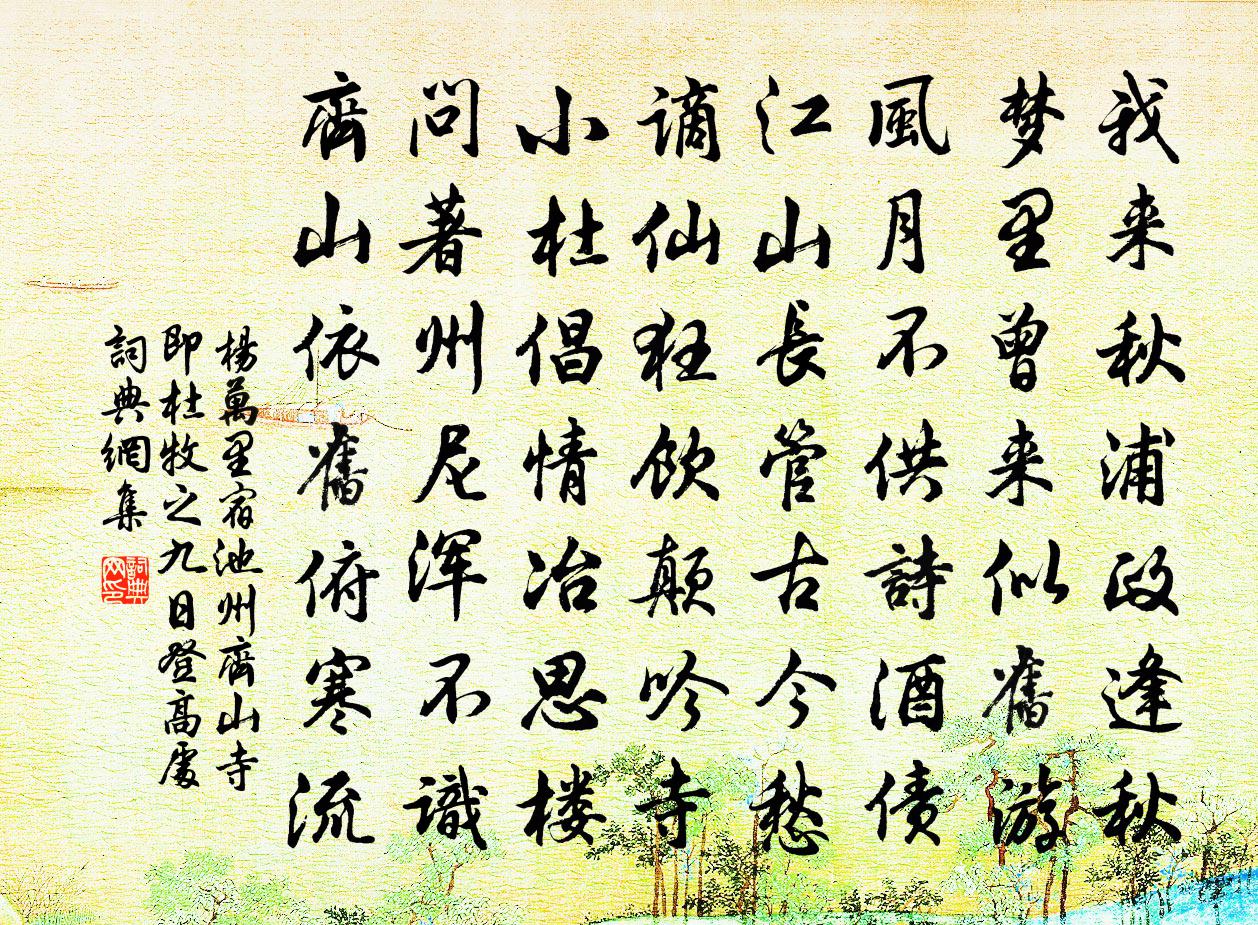 我来秋浦政逢秋
梦里曾来似舊游
風月不供詩酒债
江山長管古今愁
谪仙狂飲颠吟寺
小杜倡情冶思楼
問著州尼浑不識
齊山依舊俯寒流
楊萬里宿池州齊山寺
即杜牧之九日登高處
詞典網集
詞典网印